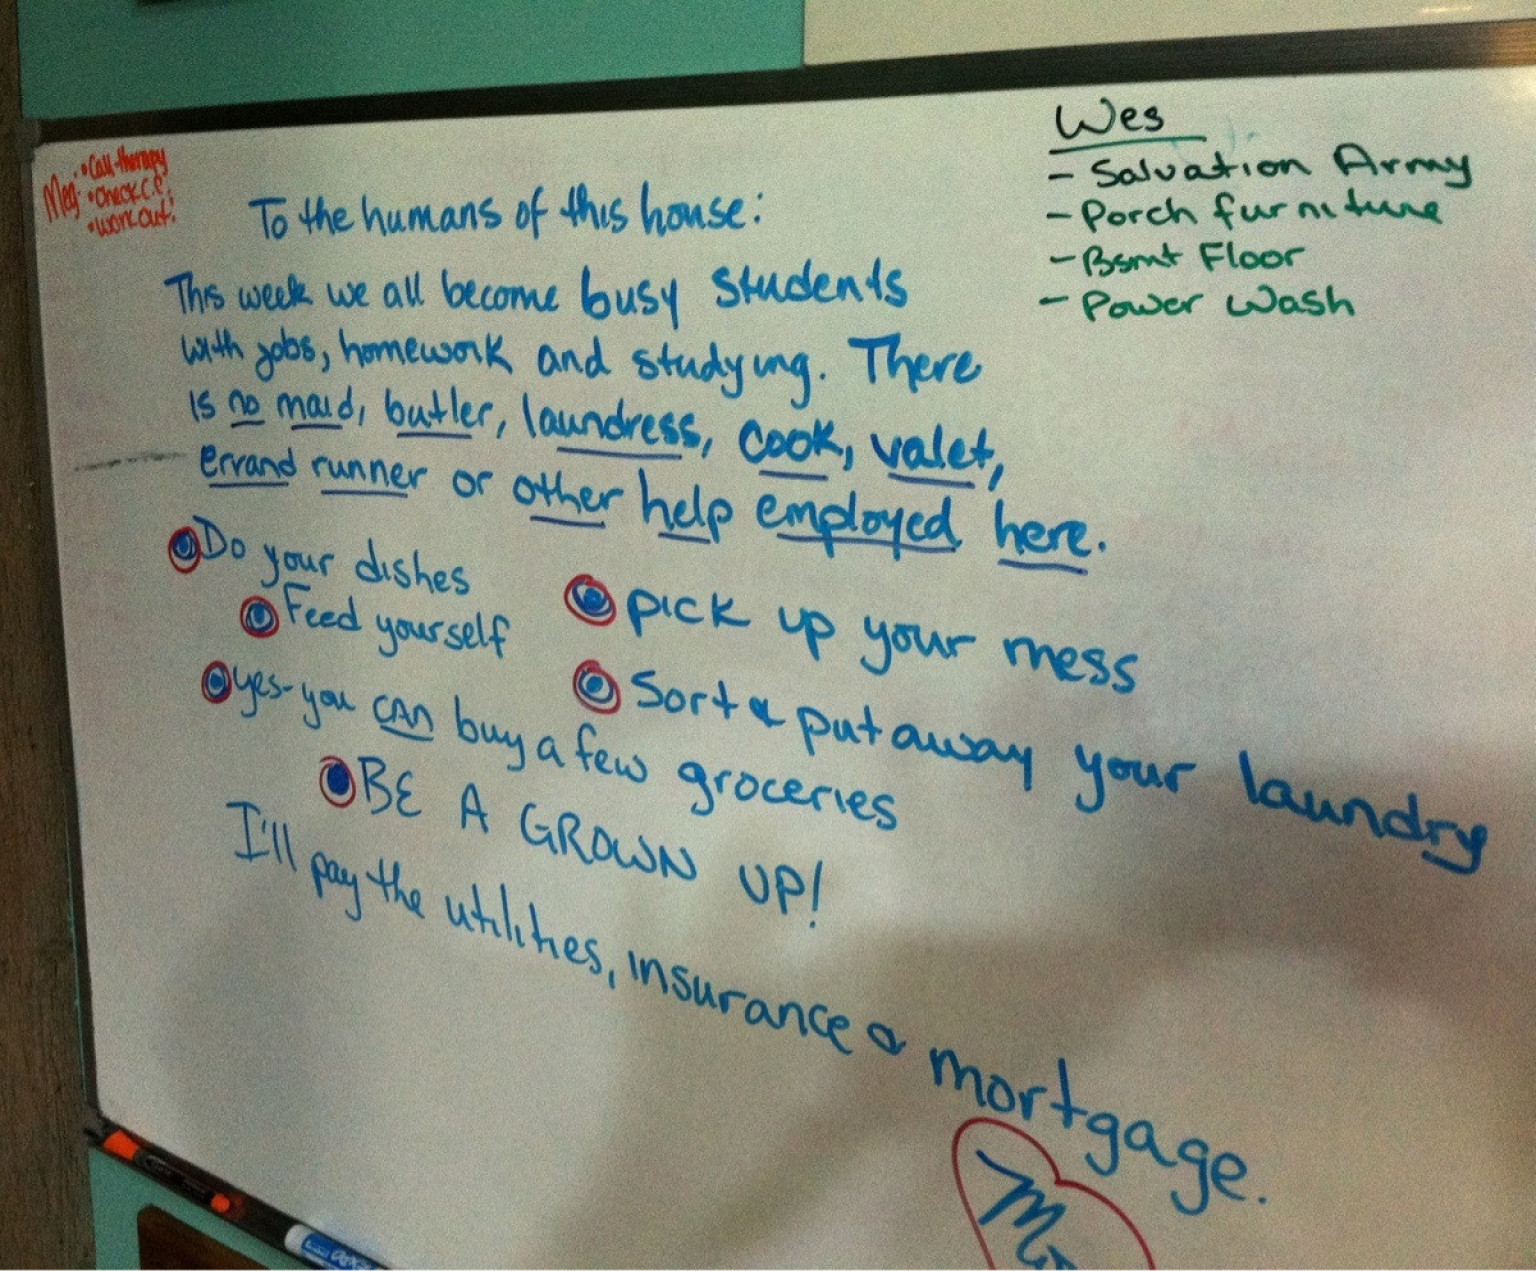 Meg: • Call therapy
• Check C.C.
• workout!
Wes
- Salvation Army
- Porch furniture
- Bsmt Floor
- Power Wash
To the humans of this house:
This week we all become busy students
with jobs, homework and studying. There
is no maid, butler, laundress, cook, valet,
errand runner or other help employed here.
Do your dishes
Feed yourself
yes-you CAN buy a few groceries
Pick up your mess
Sort & put away your laundry
BE A GROWN UP!
I'll pay the utilities, insurance & mortgage.